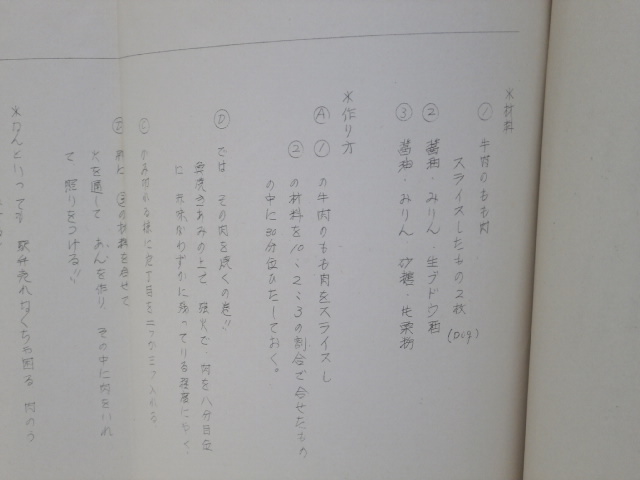 *材料
① 牛肉のもも肉
スライスしたもの2枚
② 醤油・みりん・生ブドウ酒
③ 醤油・みりん 砂糖・片栗粉
*作り方
Ⓐ ①の牛肉のもも肉をスライスし
②の材料を10:2:3の割合で合せたもの
の中に30分位ひたしておく。
では その肉を焼くのだ!!
金焼きあみの上で 強火で 肉を八分目位
に 赤味がわずかに残っている程度にやく
かみ切れる様に包丁目を二つか三つ入れる
③の材料を合せて
火を通して あんを作り その中に肉をいれ
て 照りをつける!!
*なんといっても 歯が 肉のう